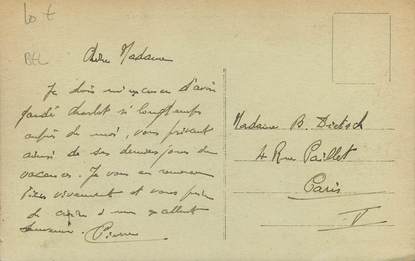 Chère Madame
Je dois m'excuser d'avoir
gardé Charlot si longtemps
auprès de moi, vous privant
ainsi de ses derniers jours de
vacances. Je vous en remercie
vivement et vous prie
de croire à mon excellent
souvenir. Pierre
Madame B. Dietsch
4 Rue Paillet
Paris
V